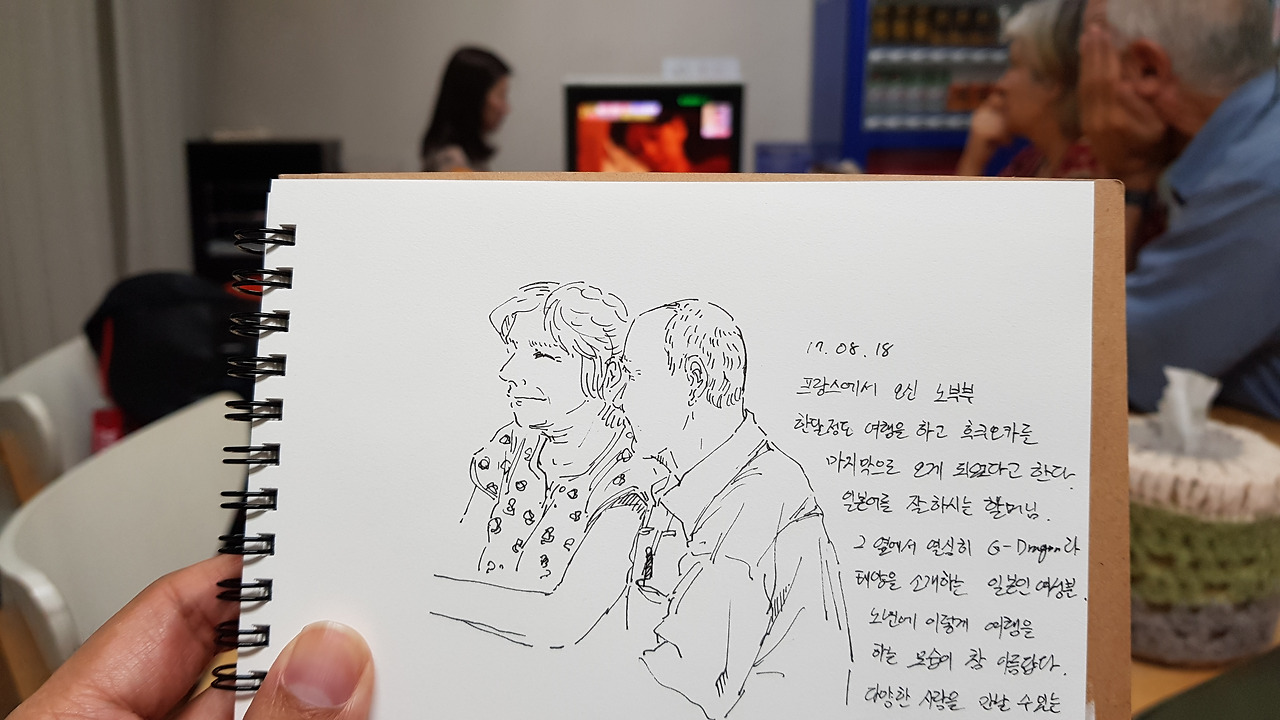 17. 08. 18
프랑스에서 오신 노부부
한달정도 여행을 하고 후쿠오카를
마지막으로 오게 되었다고 한다.
일본어를 잘 하시는 할머님.
그 옆에서 열심히 G-Dragon과
태양을 소개하는 일본인 여성분.
노년에 이렇게 여행을
하는 모습이 참 아름답다.
다양한 사람을 만날 수 있는